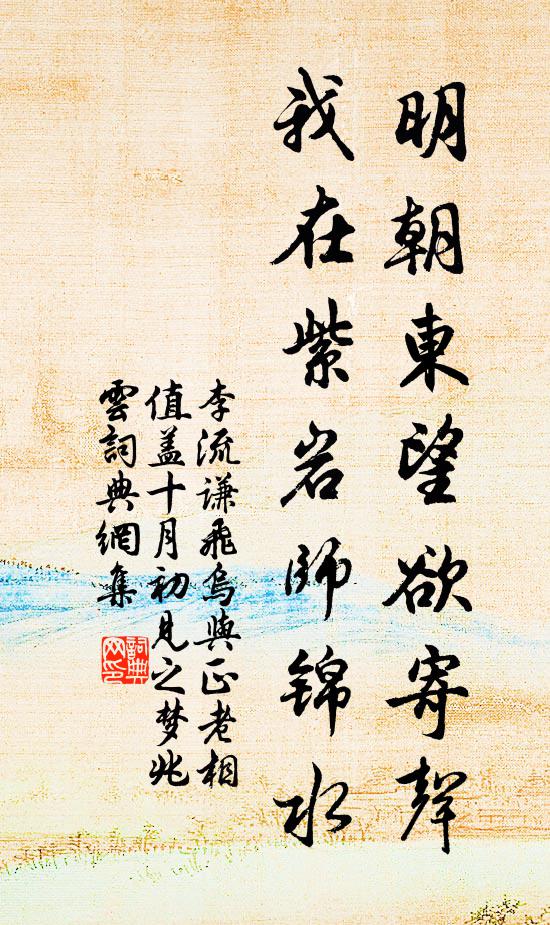 明朝東望欲寄聲
我在紫岩師錦水
李流谦飛烏與正老相
值盖十月初見之梦兆
雲詞典網集
詞典
网印